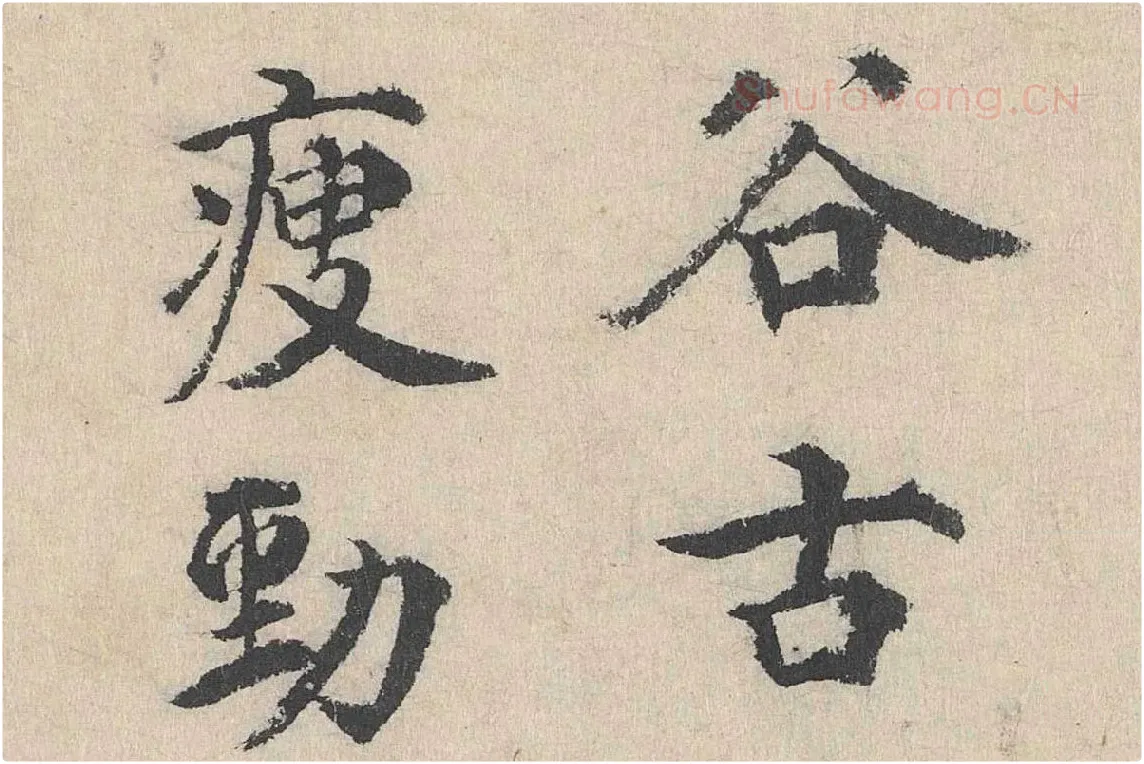 谷古
瘦勁
Shufawang.CN